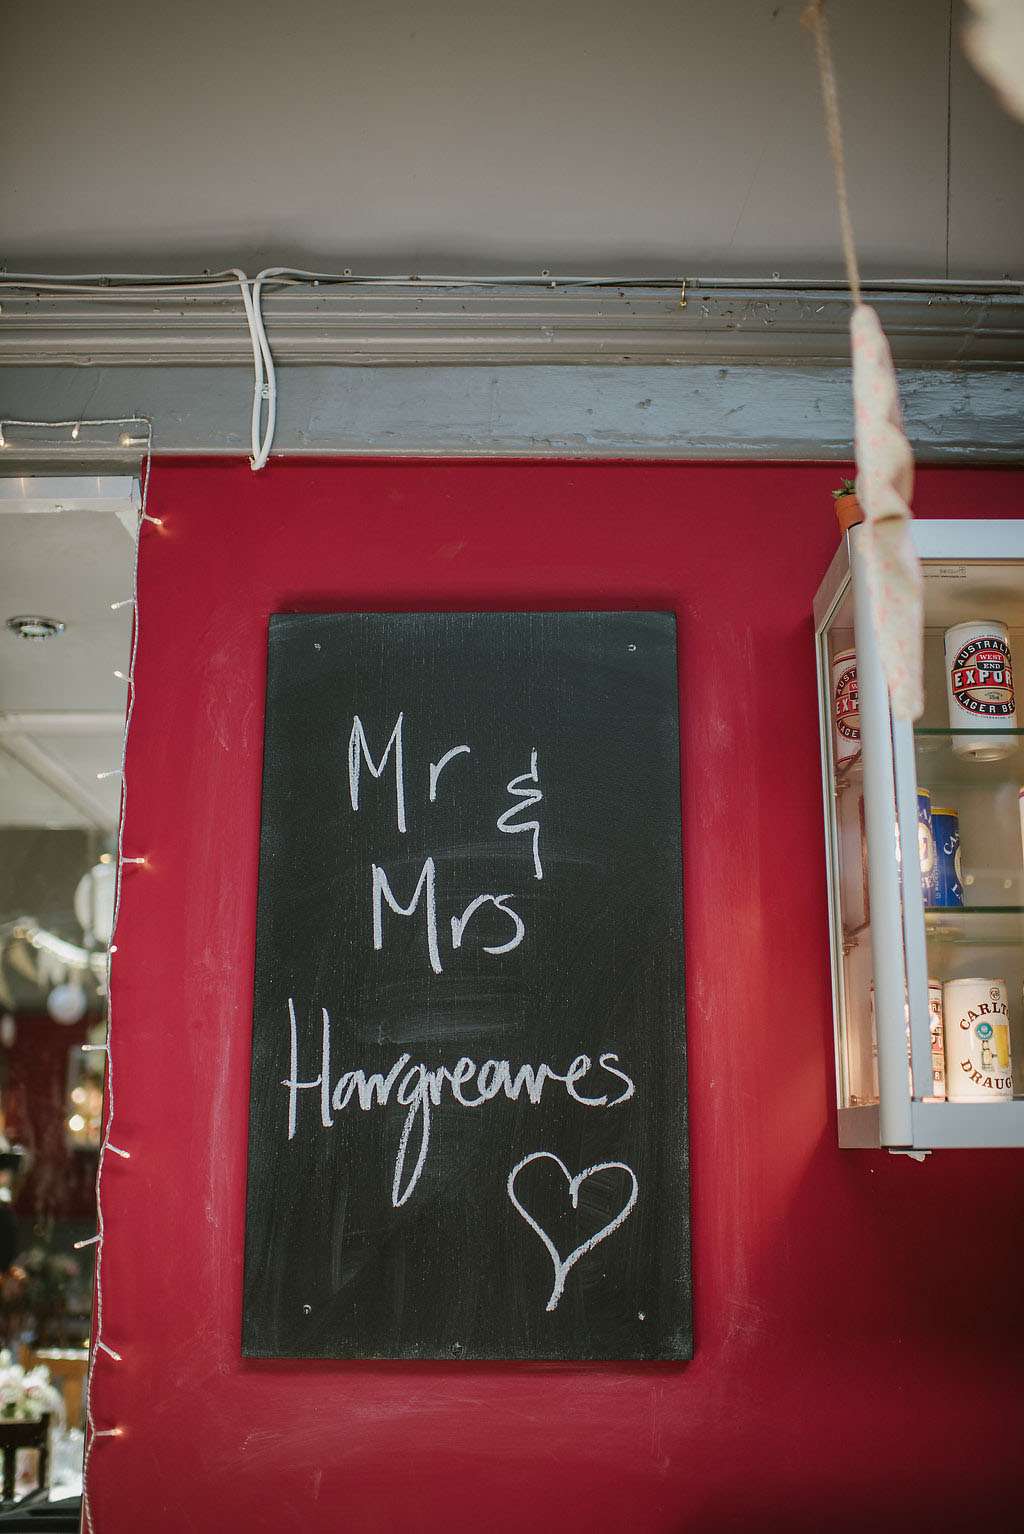 Mr &
Mrs
Hargreaves
AUSTRALI
WEST
END
EXPOR
LAGER BE
CARLT
DRAUG